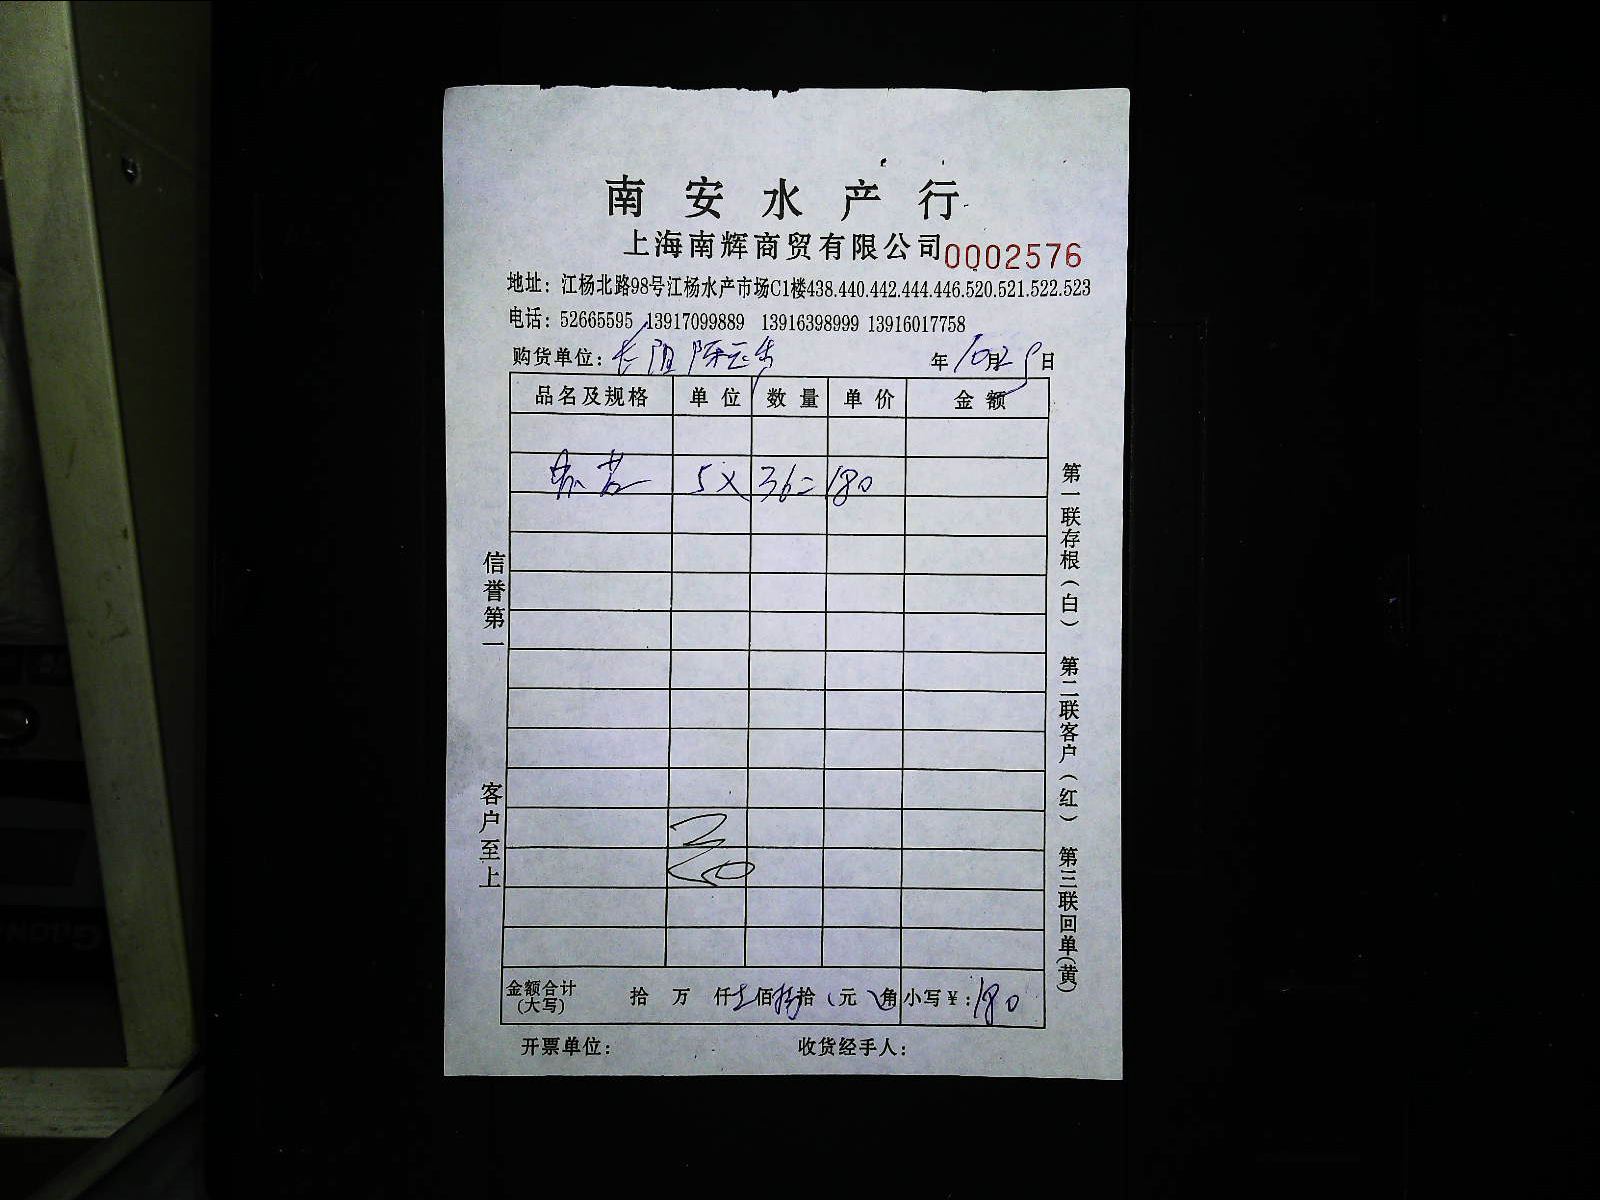 南安水产行
上海南辉商贸有限公司 0002576
地址：江杨北路98号江杨水产市场C1楼438.440.442.444.446.520.521.522.523
电话：52665595 13917099889 13916398999 13916017758
购货单位： 年10月29日
品名及规格 单位 数量 单价 金额
5×36=180
金额合计(大写) 拾 万 仟 佰 拾 元 角 小写￥：180
开票单位： 收货经手人：
信誉第一
客户至上
第一联存根（白） 第二联客户（红） 第三联回单(黄)